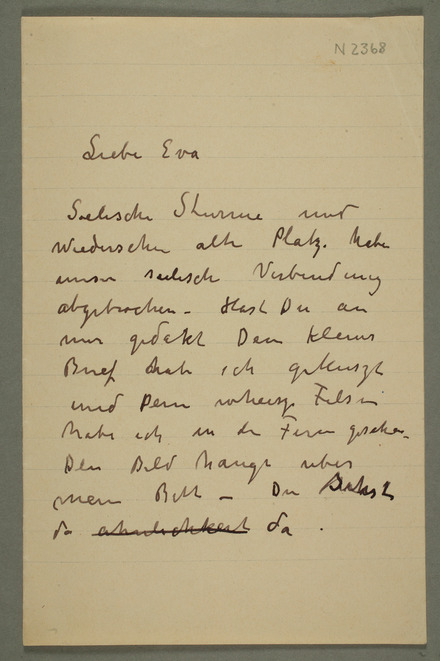 N 2368
Liebe Eva
Seelische Sturme und
Wiedersehen alte Platz. habe
unser seelisch Verbindung
abgebrochen - Hast Du an
mir gedakt Dein kleines
Brief hab ich gekuszt
und Dein Felsin
habe ich in der Fern gesehen.
Dein Bild hangt uber
mein Bett - Du
da ahnlichkeit da .